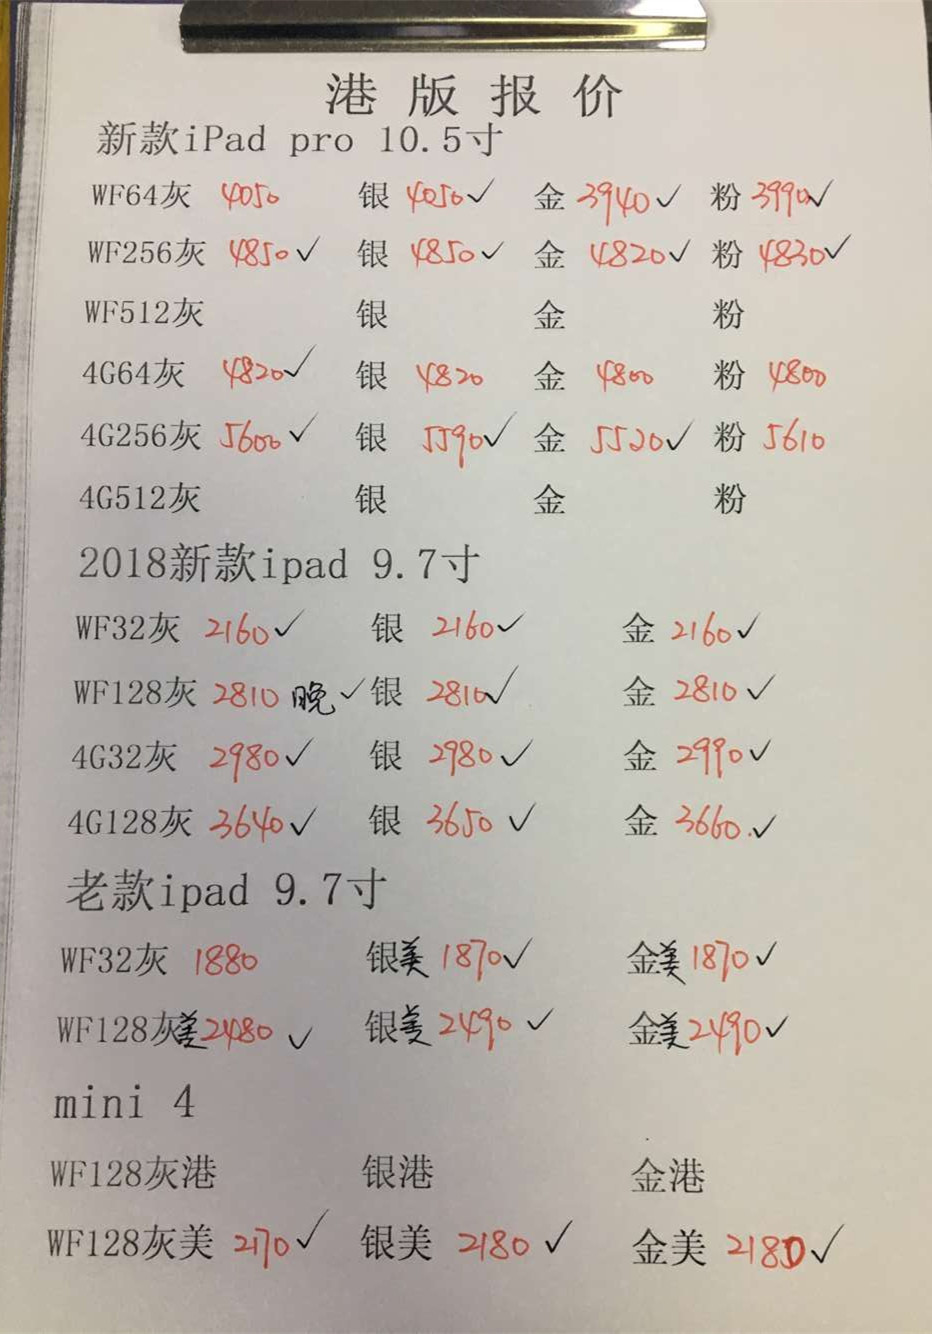 港版报价
新款iPad pro 10.5寸
WF64灰 4050 银 4050✓ 金 3940✓ 粉 3990✓
WF256灰 4850✓ 银 4850✓ 金 4820✓ 粉 4830✓
WF512灰 银 金 粉
4G64灰 4820✓ 银 4820 金 4800 粉 4800
4G256灰 5600✓ 银 5590✓ 金 5520✓ 粉 5610
4G512灰 银 金 粉
2018新款ipad 9.7寸
WF32灰 2160✓ 银 2160✓ 金 2160✓
WF128灰 2810 晚✓ 银 2810✓ 金 2810✓
4G32灰 2980✓ 银 2980✓ 金 2990✓
4G128灰 3640✓ 银 3650✓ 金 3660.✓
老款ipad 9.7寸
WF32灰 1880 银美 1870✓ 金美 1870✓
WF128灰美 2480✓ 银美 2490✓ 金美 2490✓
mini 4
WF128灰港 银港 金港
WF128灰美 2170✓ 银美 2180✓ 金美 2180✓